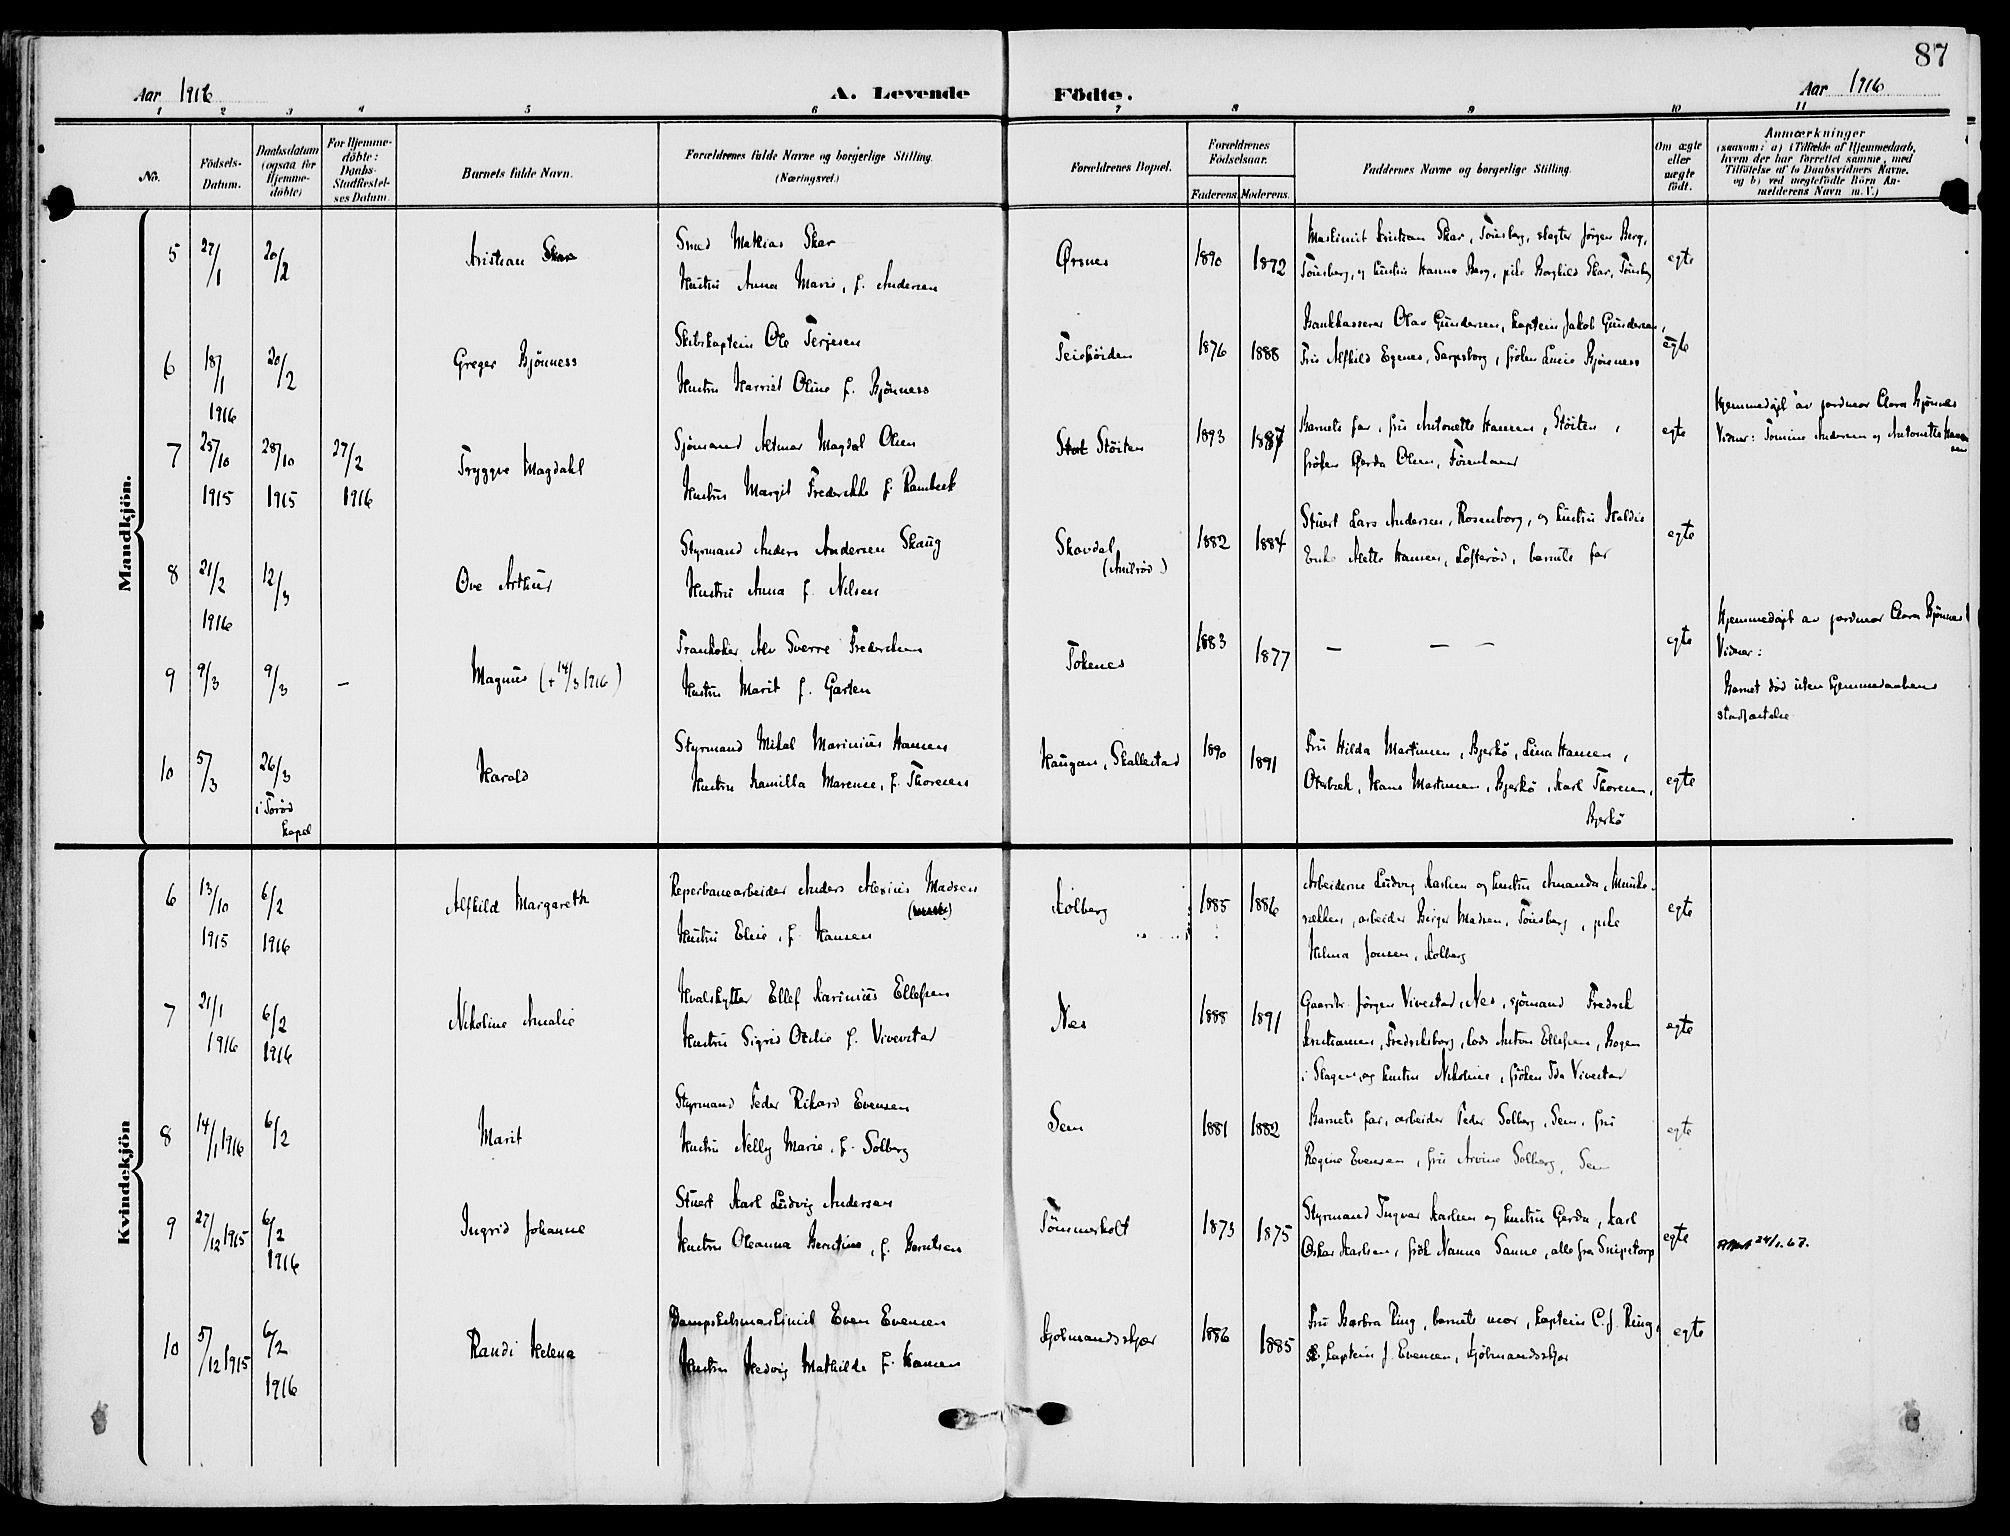 87
Aar 1916 A. Levende Födte. Aar 1916
1 2 3 4 5 6 7 8 9 10 11
No. Födsels-Datum. Daabsdatum (ogsaa for Hjemme-döbte) For Hjemme-döbte: Daabs-Stadfæstel-ses Datum. Barnets fulde Navn. Forældrenes fulde Navne og borgerlige Stilling. (Næringsvei.) Forældrenes Bopæl. Forældrenes Födselsaar. Faderens Moderens. Faddernes Navne og borgerlige Stilling. Om ægte eller uægte födt. Anmærkninger (saasom: a) i Tilfælde af Hjemmedaab, hvem der har forrettet samme, med Tilföielse af to Daabsvidners Navne. og b) ved uægtefödte Börn An-melderens Navn m. V.)
Mandkjön.
5 27/1 20/2 Kristian Skar
Smed Mathias Skar
Hustru Anna Marie, f. Andersen
Ørsnes 1890 1892
Maskinist Kristian Skar, Tönsberg, slagter Jörgen Berg,
Tönsberg, og hustru Hanna Berg, pike Borghild Skar, Tönsbg
egte
6 18/1 1916 20/2 Greger Bjönness
Skibskaptein Ole Terjesen
Hustru Harriet Oline f. Bjönness
Teishöiden 1876 1888
Bankkasserer Olav Gundersen, kaptein Jakob Gundersen,
Fru Alfhild Egenes, Sarpsborg, fröken Lucie Bjönness
egte
7 25/10 1915 28/10 1915 27/2 1916 Tryggve Magdahl
Sjömand Altmar Magdal Olsen
Hustru Margit Fredrikke f. Rambæk
Stöiten 1893 1887
Barnets far, fru Antonette Hansen, Stöiten,
fröken Gerda Olsen,
egte
Hjemmedöpt av jordmor Clara Bjönnes
Vidner: Tomine Andersen og Antonette Hansen
8 21/2 1916 12/3 Ove Arthur
Styrmand Anders Andersen Skaug
Hustru Anna f. Nilsen
Skovdal
(Amlröd)
1882 1884
Stuert Lars Andersen, Rosenborg, og hustru Haldis
Enke Mette Hansen, Lofteröd, barnets far
egte
9 9/3 9/3 – Magnus (+ 14/3 1916)
Trankoker Alv Sverre Fredriksen
Hustru Marit f. Garten
Tokenes 1883 1877 – – –
egte
Hjemmedöpt av jordmor Clara Bjönnes
Vidner:
Barnet död uten hjemmedaabens
stadfæstelse
10 5/3 26/3 i Toröd kapel Harald
Styrmand Mikal Marinius Hansen
Hustru Kamilla Marense, f. Thoresen
Haugan, Skallestad 1890 1891
Fru Hilda Martinsen, Bjerkö, Lina Hansen,
Oterbæk, Hans Martinsen, Bjerkö, Karl Thoresen,
Bjerkö
egte
Kvindekjön
6 13/10 1915 6/2 1916 Alfhild Margareth
Reperbanearbeider Anders Alexius Madsen
Hustru Elise, f. Hansen
Kolberg 1885 1886
Arbeiderne Ludvig Karlsen og hustru Amanda, Munke-
rækken, arbeider Birger Madsen, Tönsberg, pike
Helma Jonsen, Kolberg
egte
7 21/1 1916 6/2 1916 Nikoline Amalie
Hvalskytter Ellef Karinius Ellefsen
Hustru Sigrid Otilie f. Vivestad
Nes 1888 1891
Gaardbr. Jörgen Vivestad, Nes, sjömand Fredrik
Kristiansen, Fredriksborg, lods Anton Ellefsen, Bogen
i Slagen, og hustru Nikoline, fröken Ida Vivestad
egte
8 14/1 1916 6/2 Marit
Styrmand Peder Rikard Evensen
Hustru Nelly Marie, f. Solberg
Sem 1881 1882
Barnets far, arbeider Peder Solberg, Sem, fru
Regine Evensen, fru Arvine Solberg, Sem
egte
9 27/12 1915 6/2 1916 Ingrid Johanne
Stuert Karl Ludvig Andersen
Hustru Oleanna Berntine, f. Berntsen
Tömmerholt 1873 1875
Styrmand Ingvar Karlsen og hustru Gerda, Karl
Oskar Karlsen, frök Nanna Sanne, alle fra Snipetorp
egte
Attest 24/1.67.
10 5/12 1915 6/2 1916 Randi Helena
Dampskibsmaskinist Even Evensen
Hustru Hedvig Mathilde f. Hansen
Kjölmandsskjær 1886 1885
Fru Barbra Ring, barnets mor, kaptein C. J. Ring,
kaptein J. Evensen, Kjölmandsskjær
egte